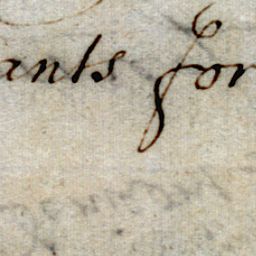 ants for